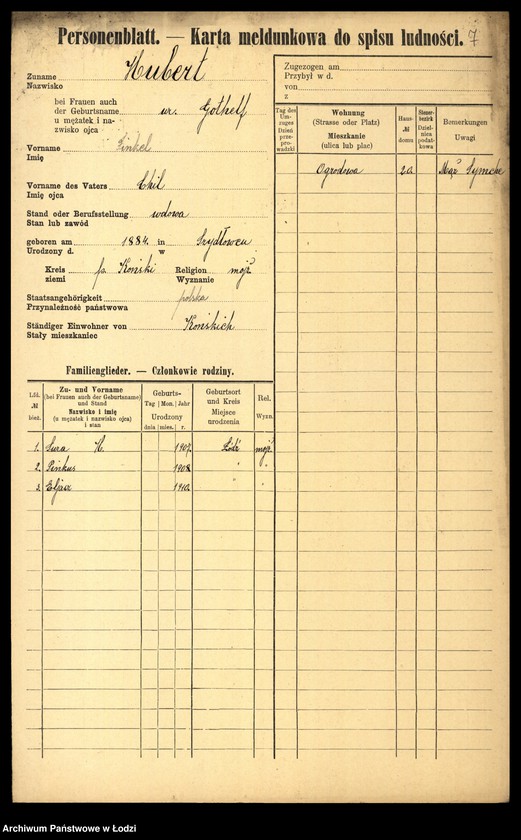 Personenblatt. — Karta meldunkowa do spisu ludności. 7
Zuname Hubert
Nazwisko
bei Frauen auch
der Geburtsname ur. Gothelf
u mężatek i na-
zwisko ojca
Vorname
Imię
Vorname des Vaters Chil
Imię ojca
Stand oder Berufsstellung wdowa
Stan lub zawód
geboren am 1884. in Szydłowcu
Urodzony d. w
Kreis p. Koński Religion mojż
ziemi Wyznanie
Staatsangehörigkeit polska
Przynależność państwowa
Ständiger Einwohner von Końskich
Stały mieszkaniec
Familienglieder. — Członkowie rodziny.
Lfd. № bież.
Zu- und Vorname
(bei Frauen auch der Geburtsname)
und Stand
Nazwisko i imię
(u mężatek i nazwisko ojca)
i stan
Geburts-
Tag Mon. Jahr
Urodzony
dnia mies. r.
Geburtsort
und Kreis
Miejsce
urodzenia
Rel.
Wyzn.
1. Sura H. 1907. Łódź mojż
2. Pinkus 1908. "
3. Eljasz 1910. "
Zugezogen am
Przybył w d.
von
z
Tag des
Um-
zuges
Dzień
prze-
pro-
wadzki
Wohnung
(Strasse oder Platz)
Mieszkanie
(ulica lub plac)
Haus-
№
domu
Steuer-
bezirk
Dziel-
nica
podat-
kowa
Bemerkungen
Uwagi
Ogrodowa 20. Mąż Symcha
Archiwum Państwowe w Łodzi